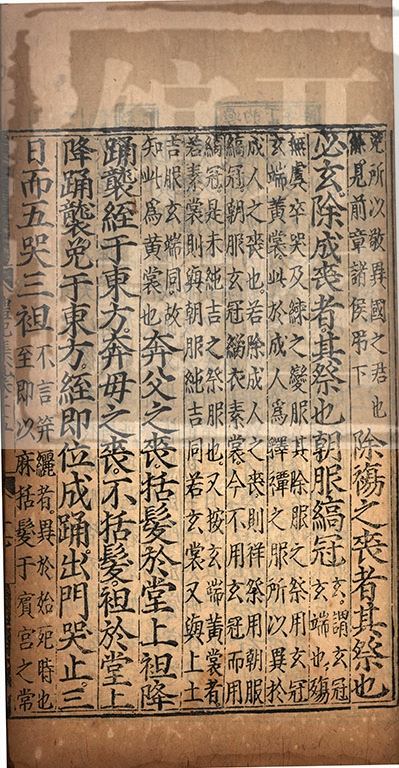 免所以敬異國之君也
見前章諸侯弔下
除殤之喪者其祭也
必玄除成喪者其祭也朝服縞冠
玄謂玄冠
玄端也殤
無虞卒哭及練之變服其除服之祭用玄冠
玄端黃裳此於成人爲釋禫之服所以異於
成人之喪也若除成人之喪則祥祭用朝服
縞冠朝服玄冠緇衣素裳今不用玄冠而用
縞冠是未純吉之祭服也又按玄端黃裳者
若素裳則與朝服純吉同若玄裳又與上士
吉服玄端同故
知此爲黃裳也
奔父之喪括髮於堂上袒降
踊襲絰于東方奔母之喪不括髮袒於堂上
降踊襲免于東方絰即位成踊出門哭止三
日而五哭三袒
不言笄纚者異於始死時也
至即以麻括髮于殯宮之堂